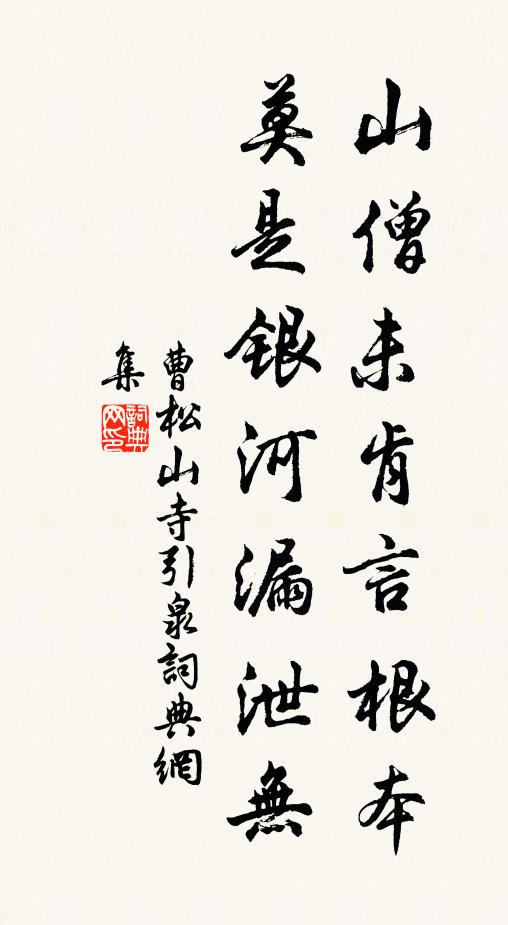 山僧未肯言根本
莫是銀河漏泄無
曹松山寺引泉詞典網
集
詞典
网印